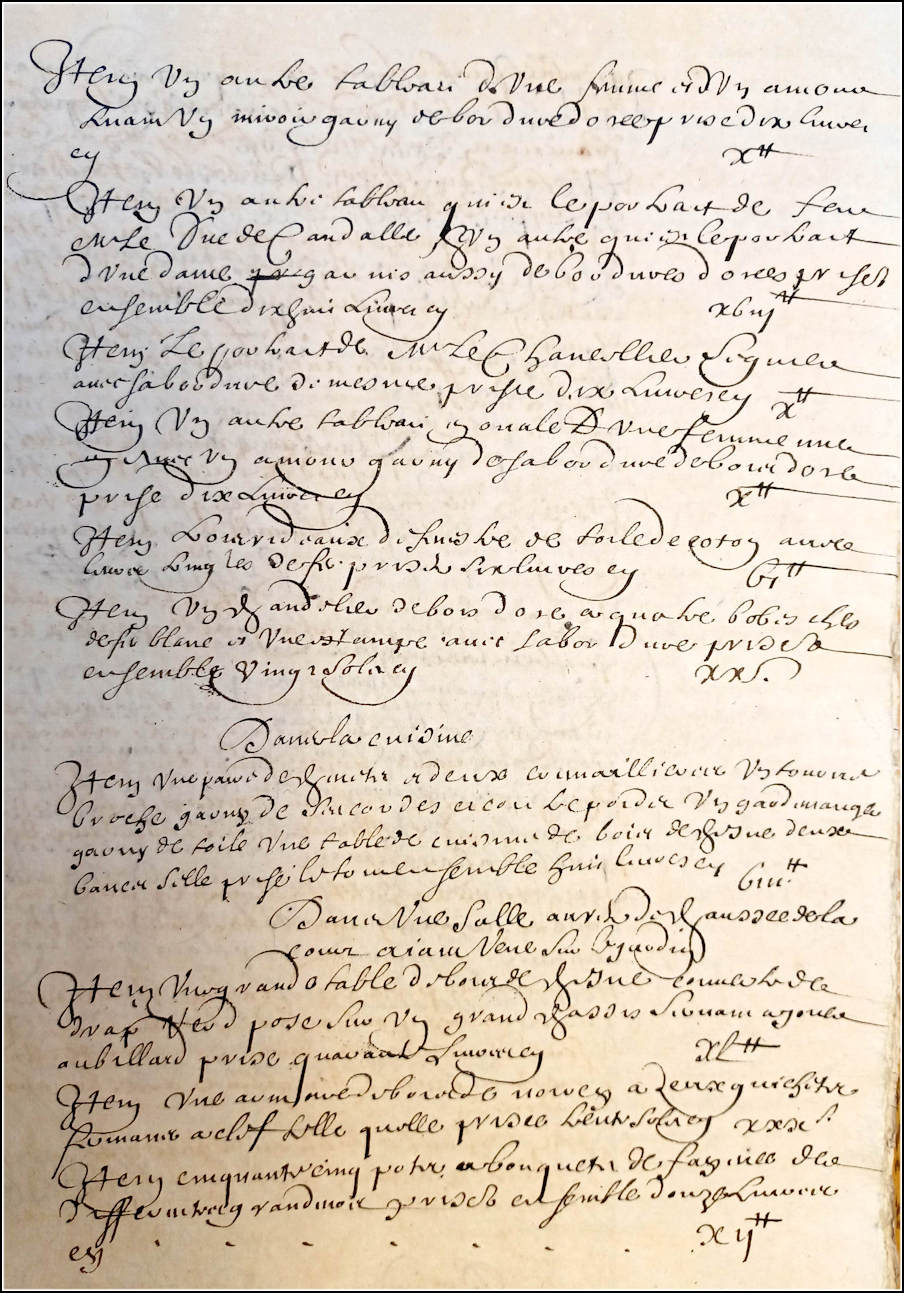 Item Un autre tableau d'une femme et d'Un amour
tenant Un miroir garny de bordure doree prise dix livres
cy x tt
Item Un autre tableau qui est le portraict de feu
Mr Le Duc de Candalle, & Un autre qui est le portraict
d'Une dame garnis aussy de bordures dorees prisez
ensemble dixhuit Livres cy xviij tt
Item Le portraict de Mr Le Chancellier Seguier
avec sa bordure de mesme prise dix Livres cy x tt
Item Un autre tableau en ovale D'Une femme nue
et avec Un amour garny de sa bordure de bois dore
prise dix Livres cy x tt
Item trois rideaux de fenestre de toile de coton avec
leurs tringles de fer prisez six livres cy vj tt
Item Un chandelier de bois dore a quatre bobesches
de fer blanc et Une estampe avec sa bordure prisez
ensemble Vingt Sols cy xx s.
Dans la cuisine
Item Une paire de chenets et deux cremaillieres Un tourne
broche garny de ses cordes et contrepoidz Un gardmanger
garny de toile Une table de cuisine de bois de chesne deux
bancs selle prisé le tout ensemble huit livres cy viij tt
Dans Une Salle au rez de chaussee de la
cour aiant Veue sur le jardin
Item Une grande table de bois de chesne couverte de
drap Verd pose sur Un grand chassis servant a jouer
au billard prise quarante Livres cy xl tt
Item Une armoire de bois de noyer a deux guichets
fermans a clef telle quelle prisee trente Sols cy xxx s.
Item cinquante cinq pots a bouquets de fayence de
differentes grandeurs prisez ensemble douze Livres
cy xij tt